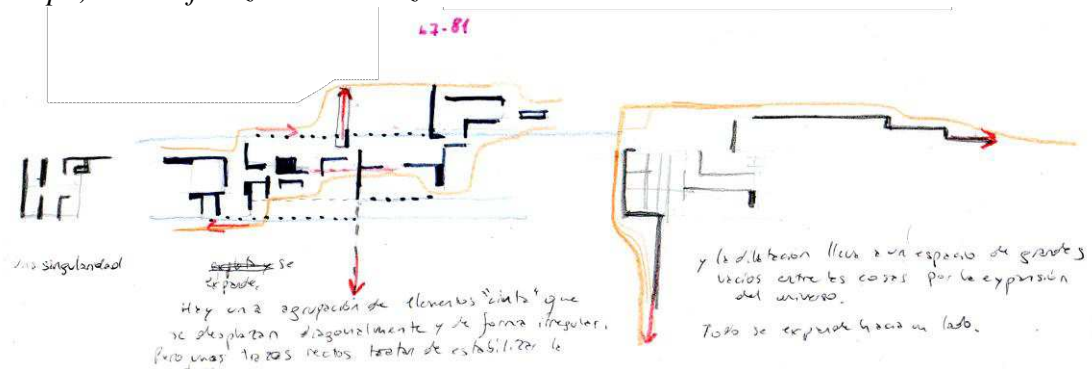 47-81
una singularidad
explota y se
expande.
Hay una agrupación de elementos "cinta" que
se desplazan diagonalmente y de forma irregular.
Pero unos trazos rectos tratan de estabilizar la
y la dilatación lleva a un espacio de grandes
vacíos entre las cosas por la expansión
del universo.
Todo se expande hacia un lado.